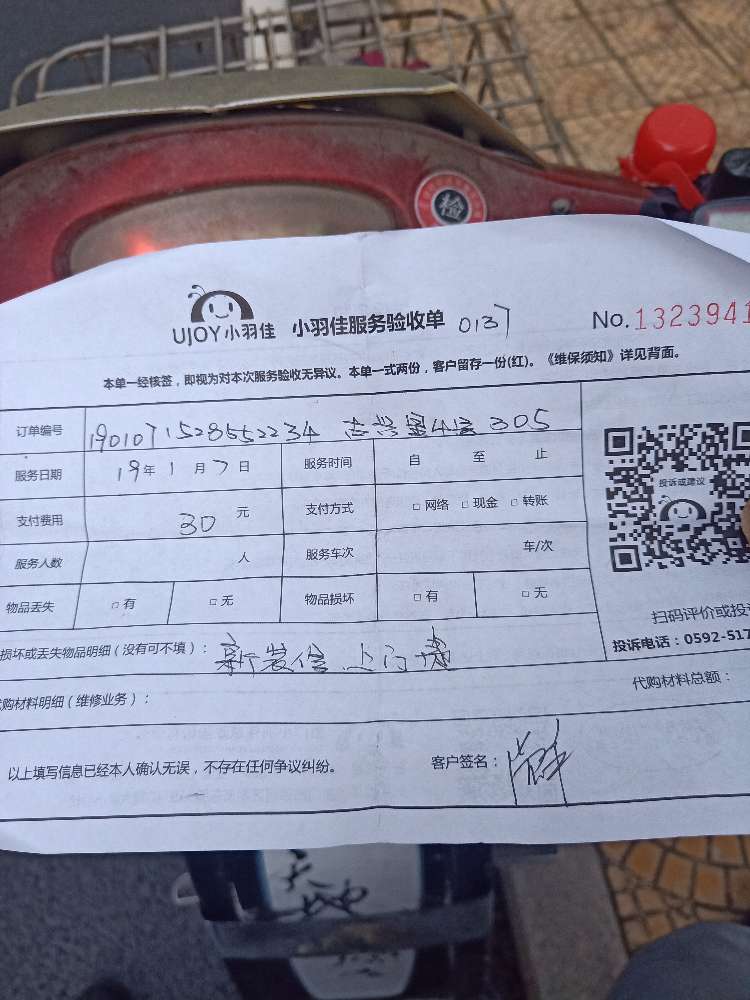 检
UJOY小羽佳 小羽佳服务验收单 0137 No.1323941
本单一经核签，即视为对本次服务验收无异议。本单一式两份，客户留存一份(红)。《维保须知》详见背面。
订单编号 1901071528552234 305
服务日期 19年1月7日 服务时间 自 至 止
支付费用 30元 支付方式 □网络 □现金 □转账
服务人数 人 服务车次 车/次
物品丢失 □有 □无 物品损坏 □有 □无
投诉或建议
扫码评价或投
投诉电话：0592-517
损坏或丢失物品明细（没有可不填）： 新装修上门费
购材料明细（维修业务）： 代购材料总额：
以上填写信息已经本人确认无误，不存在任何争议纠纷。 客户签名：